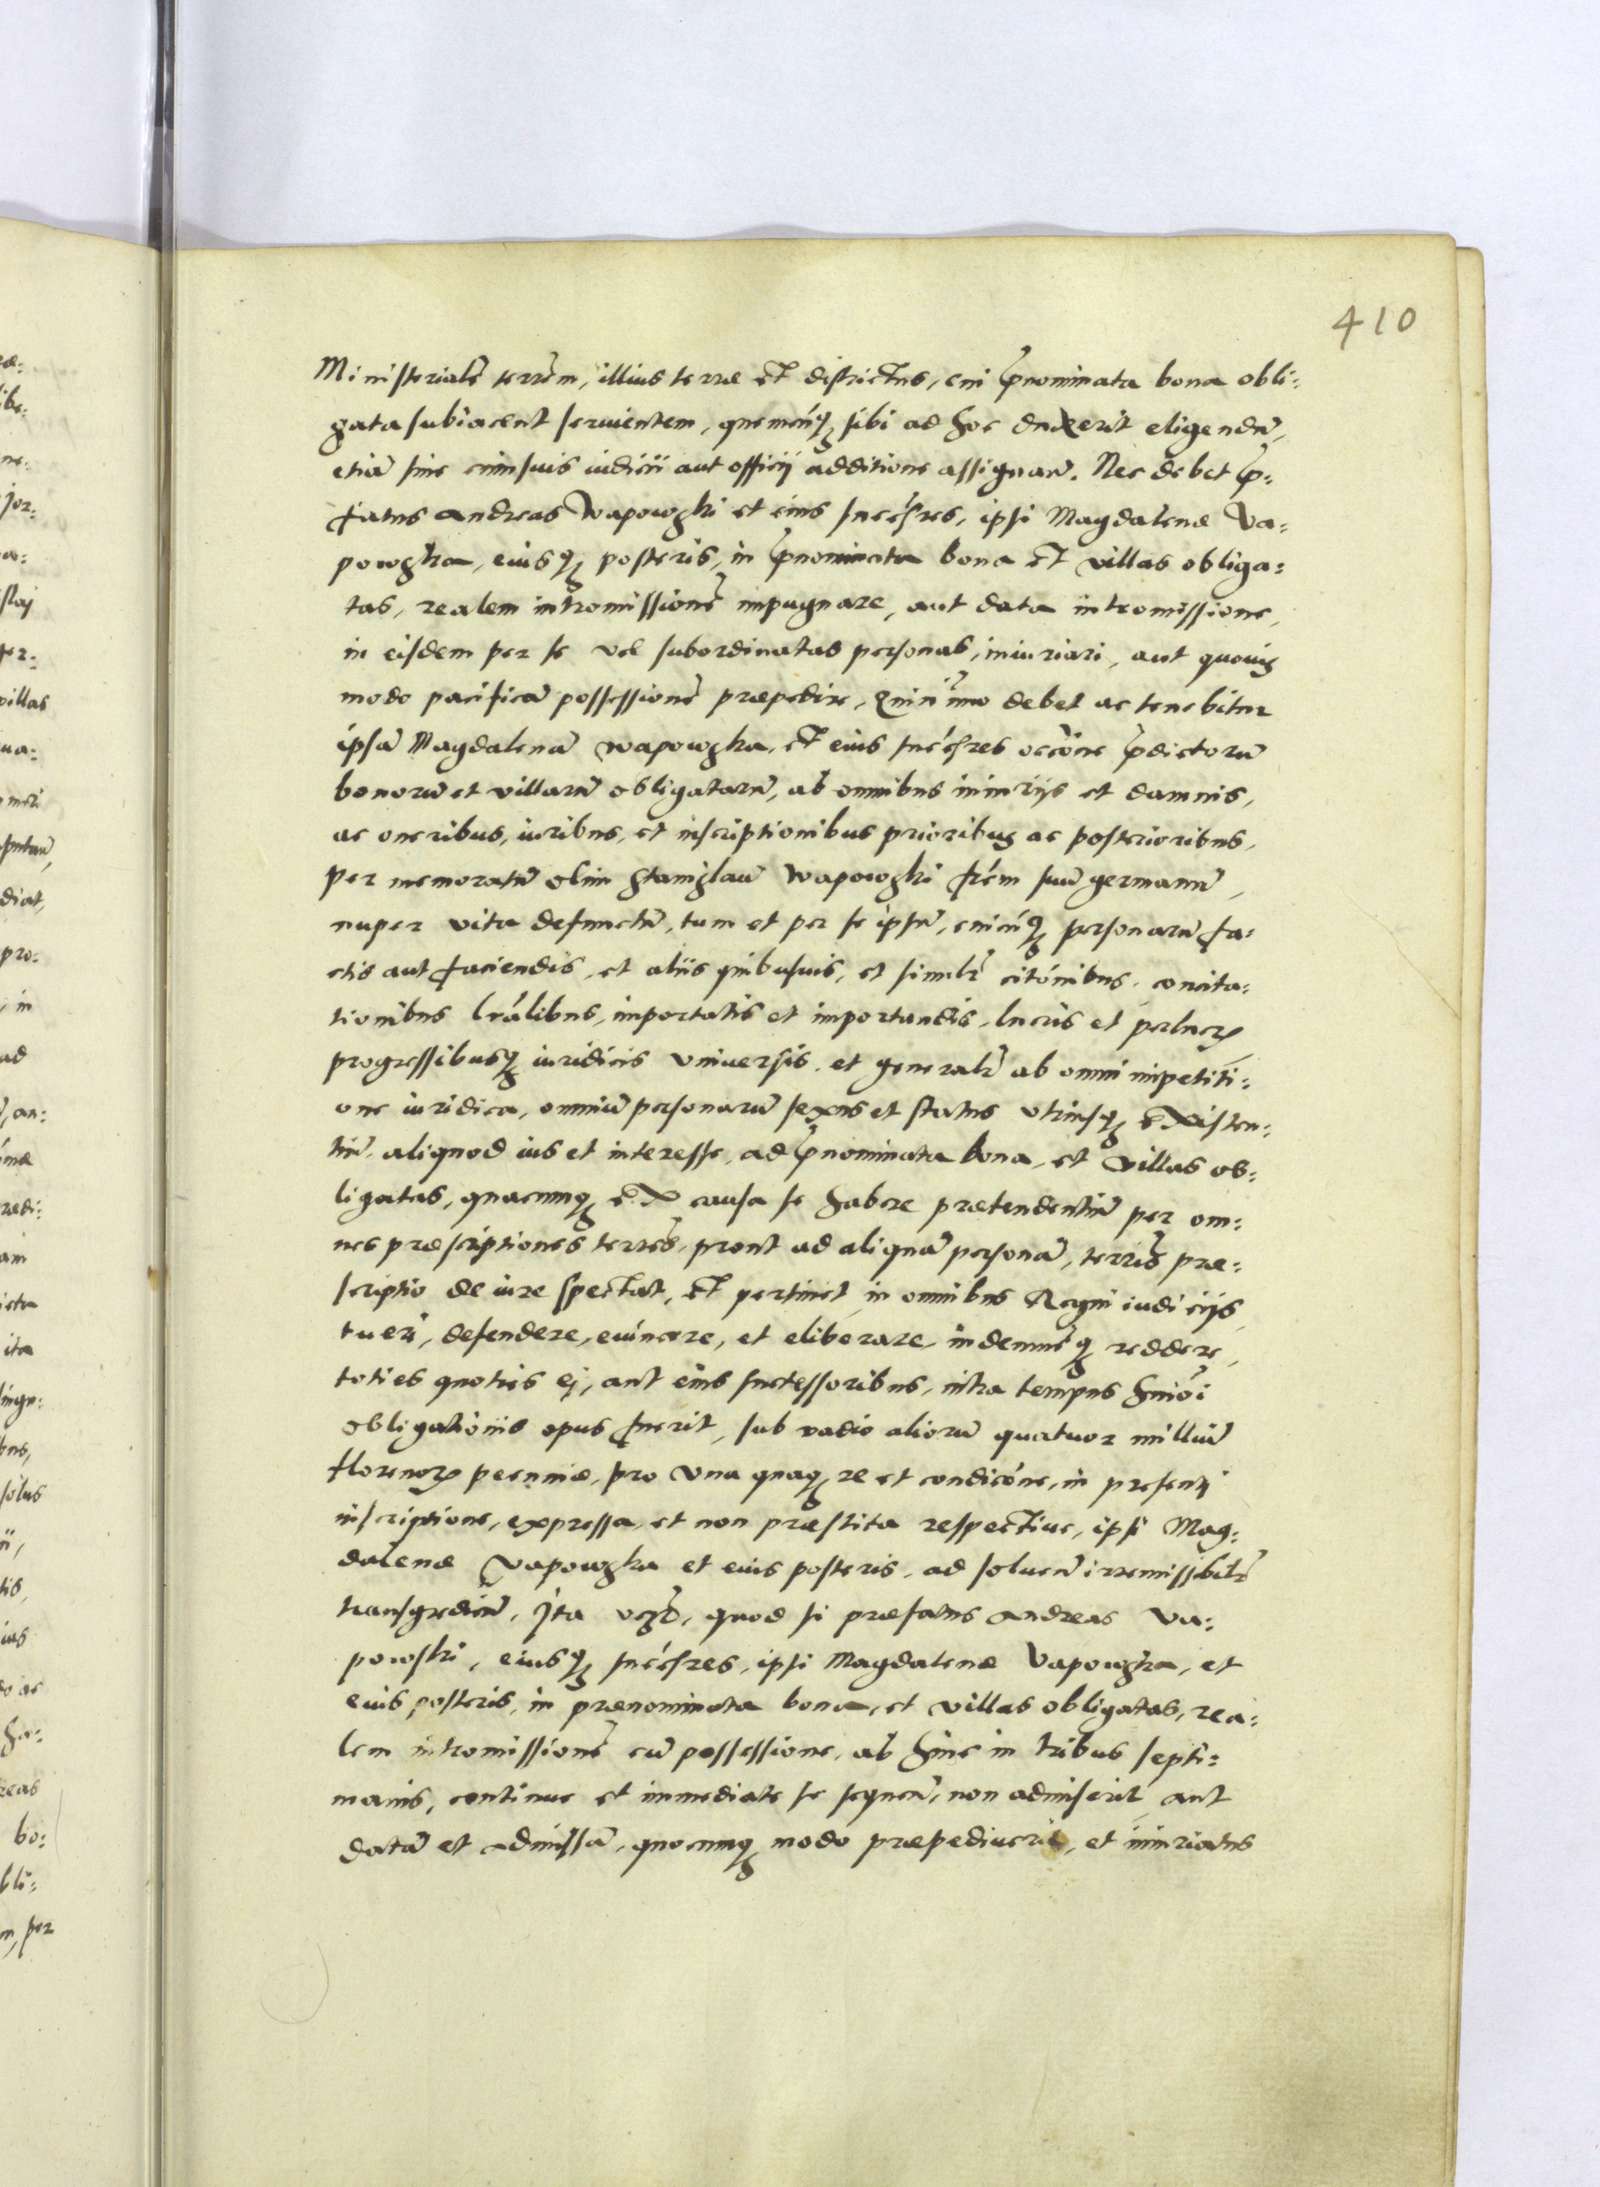 410
Ministerialē terrēm, illius terrae et districtus, cui p̄nominata bona obli=
gata subiacent seruientem, quemcūq; sibi ad hoc duxerit eligendū,
etiā sine cuiusuis iudicii aut officij additione assignarū. Nec debet p̄=
fatus Andreas Wapowski et eius succēsres, ipsi Magdalenae Va=
powska, eiusq; posteris, in p̄nominata bona et villas obliga=
tas, realem intromissionē impugnare, aut data intromissione,
in eisdem per se vel subordinatas personas, iniuriari, aut quouis
modo pacificā possessionē praepedire, Quin imo debet ac tenebitur
ipsā Magdalenā Wapowska, et eius succēsres occōne p̄dictorū
bonorū et villarū obligatarū, ab omnibus iniuriys et damnis,
ac oneribus, iuribus, et inscriptionibus prioribus ac posterioribus,
per memoratū olim Stanislaū Wapowski frēm suū germanū,
nuper vita defunctū, tum et per se ipsū, cuiuscūq; personarū fa=
ctis aut faciendis, et aliis quibusuis, et similr̄ citōnibus, concita=
tionibus lrālibus, importatis et importandis, lucris et perlucr̄
progressibusq; iuridicis vniuersis, et generalr̄ ab omni impetiti=
one iuridica, omniū personarū sexus et status vtriusq; existen=
tiū, aliquod ius et interesse, ad p̄nominata bona, et villas ob=
ligatas, quacunq; ex causa se habere praetendentiū per om=
nes praescriptiones terrēs, prout ad aliquā personā, terris̄ prae=
scriptio de iure spectat, et pertinet in omnibus Regni iudiciis,
tueri, defendere, euincere, et eliberare, indemneq; reddere,
toties quoties ej, aut eius successoribus, intra tempus huiōi
obligationis opus fuerit, sub vadio aliorū quatuor milliū
florenor̄ pecuniae, pro vna quaq; re et condicōne, in presenti
inscriptione, expressa, et non praestita respectiue, ipsi Mag=
dalenae Vapowska et eius posteris, ad soluen̄ irremissibilr̄
transgredien̄, Ita vc̄zb, quod si praefatus Andreas Va=
powski, eiusq; succēsres, ipsi Magdalenae Vapowska, et
eius posteris, in praenominata bona, et villas obligatas, rea=
lem intromissionē cū possessione, ab hinc in tribus septi=
manis, continue et immediate se sequen̄, non admiserit aut
datā et admissā, quocunq; modo praepediuerit, et iniuriatus